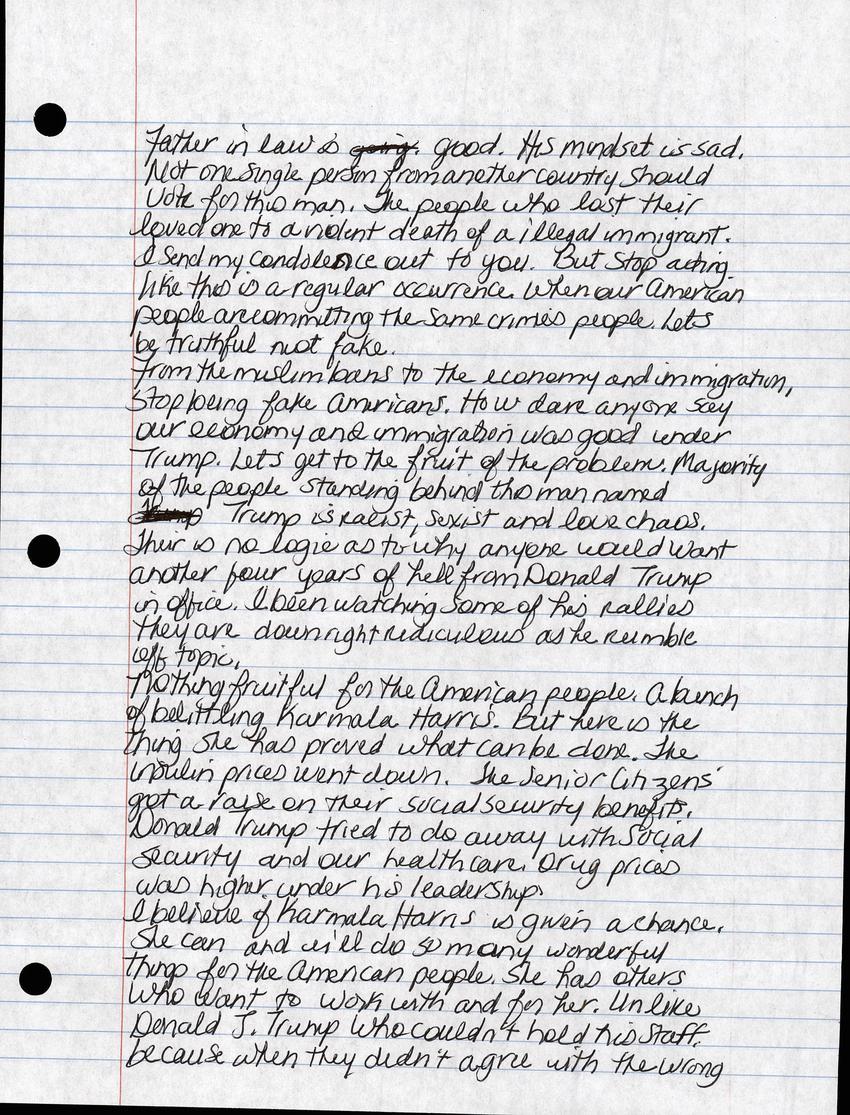 Father in law is going. good. His mindset is sad.
Not one single person from another country should
vote for this man. The people who lost their
loved one to a violent death of a illegal immigrant.
I send my condolence out to you. But stop acting
like this is a regular occurrence. When our American
people are committing the same crimes people. Lets
be truthful not fake.
From the muslim bans to the economy and immigration,
Stop being fake Americans. How dare anyone say
our economy and immigration was good under
Trump. Let's get to the fruit of the problem. Majority
of the people standing behind this man named
Trump is racist, sexist and love chaos.
Their is no logic as to why anyone would want
another four years of hell from Donald Trump
in office. I been watching some of his rallies
they are downright rediculous as he rumble
off topic.
Nothing fruitful for the American people. A bunch
of belittling Karmala Harris. But here is the
thing she has proved what can be done. The
insulin prices went down. The Senior Citizens'
got a raise on their social security benefits.
Donald Trump tried to do away with Social
security and our healthcare. Drug prices
was higher under his leadership.
I believe if Karmala Harris is given a chance.
She can and will do so many wonderful
things for the American people. She has others
who want to work with and for her. Unlike
Donald J. Trump who couldn't hold his staff.
because when they didn't agree with the wrong